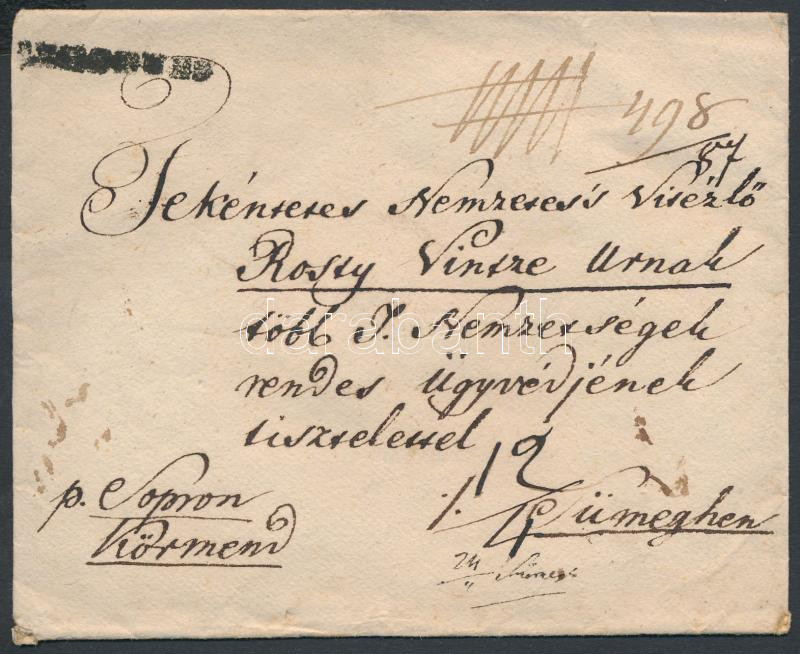 498
87
Tekéntetes Nemzetes's Vitézlő
Rosty Vintze Urnak
több T. Nemzetségek
rendes Ügyvédjének
tisztelettel
12
p. Sopron
/. 4 Sümeghen
Körmend
24
darabanth